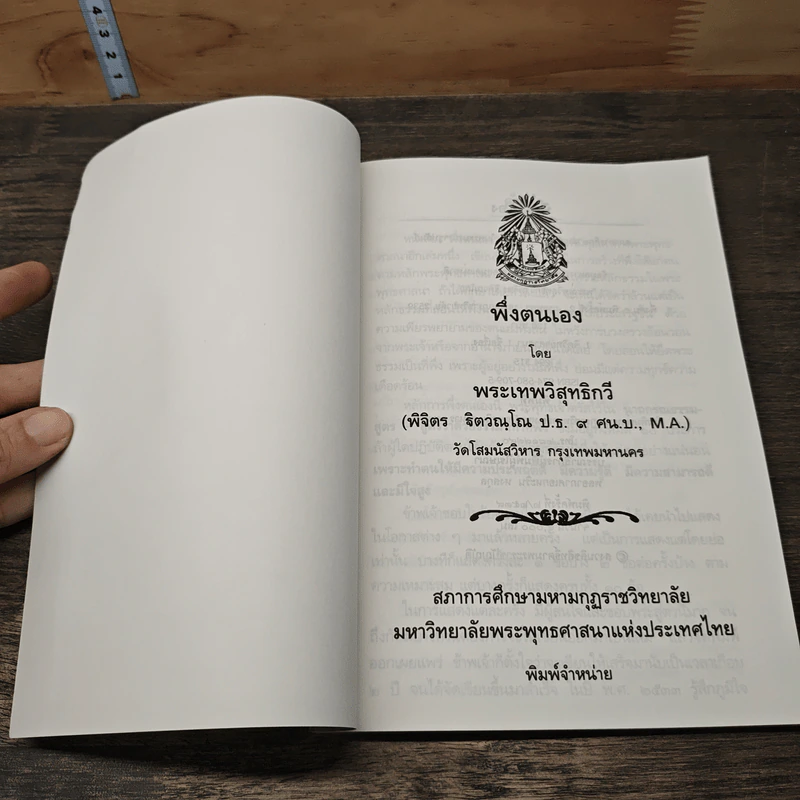 4
3
2
1
พึ่งตนเอง
โดย
พระเทพวิสุทธิกวี
(พิจิตร ฐิตวณฺโณ ป.ธ. ๙ ศน.บ., M.A.)
วัดโสมนัสวิหาร กรุงเทพมหานคร
สภาการศึกษามหามกุฏราชวิทยาลัย
มหาวิทยาลัยพระพุทธศาสนาแห่งประเทศไทย
พิมพ์จำหน่าย